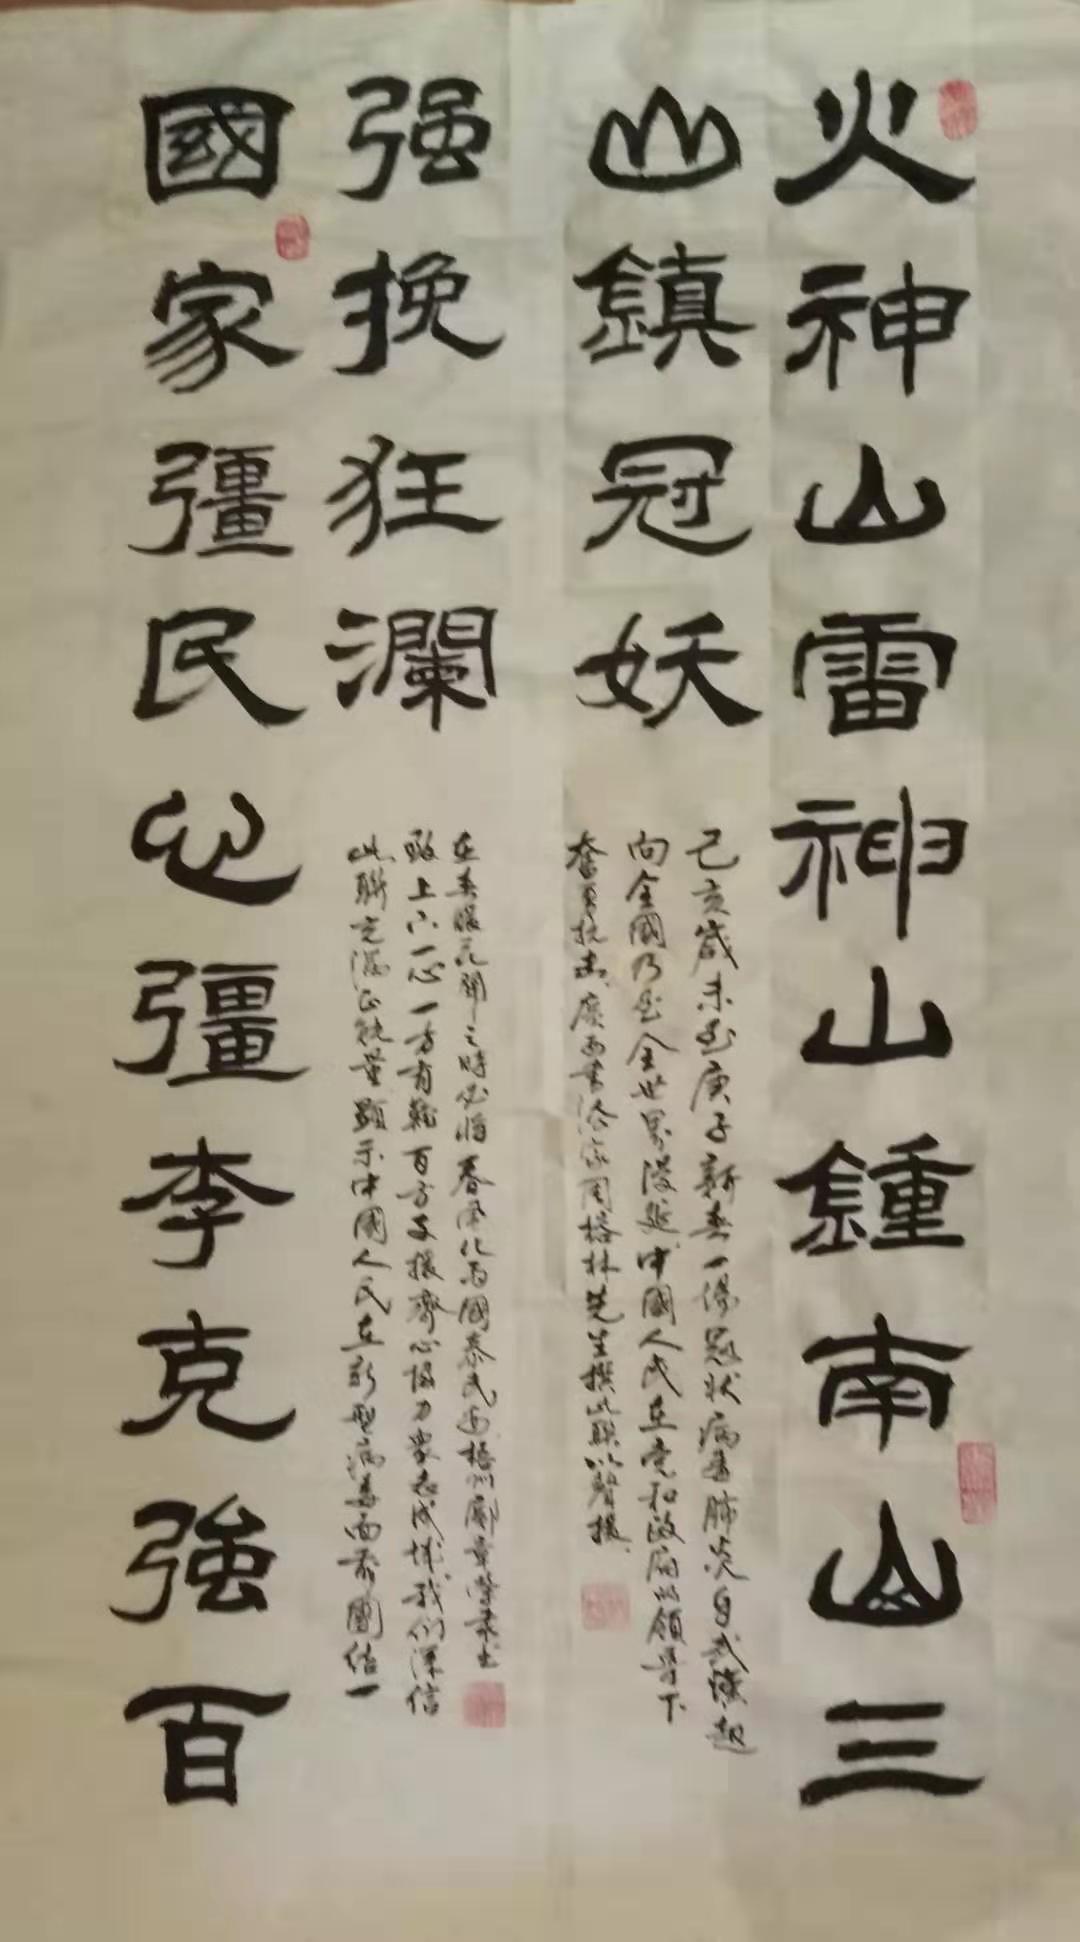 火神山雷神山鍾南山三
山鎮冠妖
己亥歲末至庚子新春一場冠狀病毒肺炎自武漢起
向全國乃至全世界漫延中國人民在党和政府的領导下
奮勇抗击廣西書法家周榕林先生撰此联以聲援
國家彊民心彊李克強百
强挽狂瀾
在春暖花開之時必將春風化雨國泰民安梧州鄺章榮录书
致上下一心一方有難百方支援齊心協力衆志成城我们深信
此聯充滿正能量顯示中國人民在新型病毒面前團结一